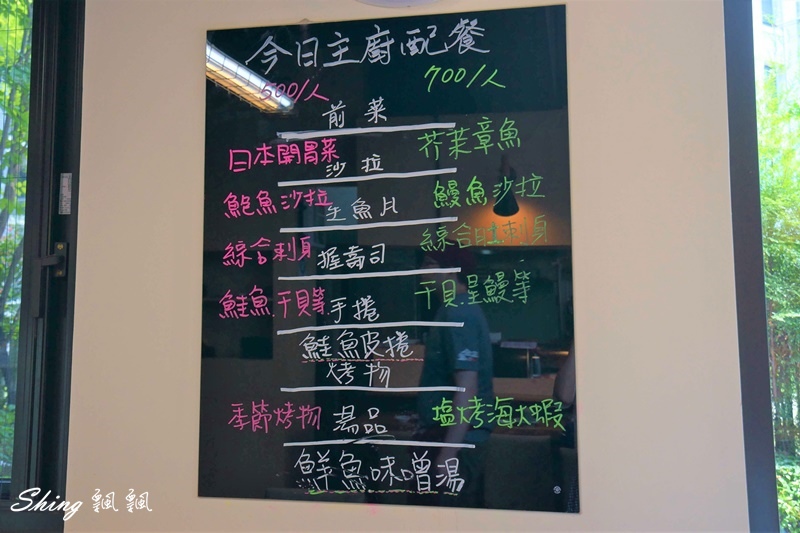 今日主廚配餐
500/人 700/人
前菜
日本開胃菜 芥茉章魚
沙拉
鮑魚沙拉 鰻魚沙拉
生魚片
綜合刺身 綜合旺刺身
握壽司
鮭魚.干貝等 干貝.星鰻等
手捲
鮭魚皮捲
烤物
季節烤物 塩烤海大蝦
湯品
鮮魚味噌湯
Shing 飄飄